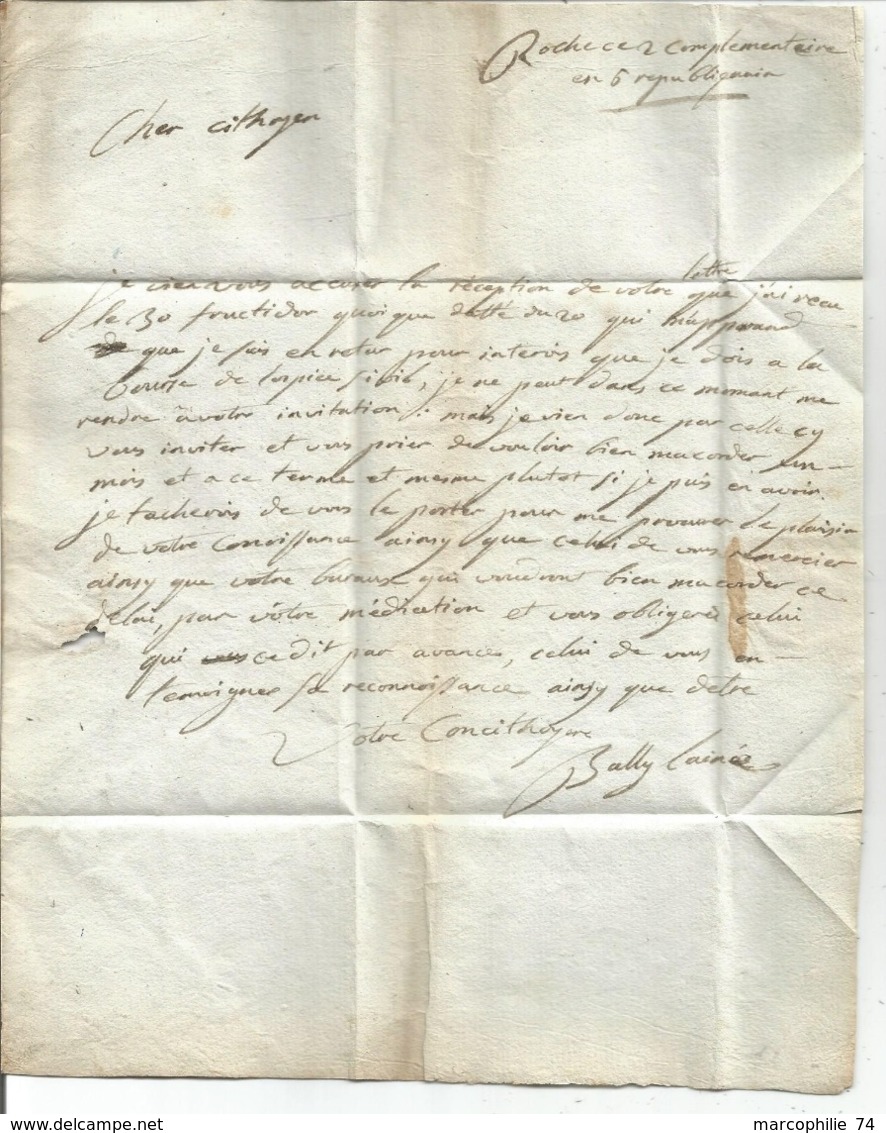 Roche ce 2 complementaire
en 6 republiquain
Cher cithoyen
je vien vous accuser la réception de votre lettre que j'ai recu
le 30 fructidor quoique datté du 20 qui m'apprend
que je suis en retar pour interois que je dois a la
bourse de lospice sivil, je ne peut dans ce moment me
rendre à votre invitation : mais je vien donc par celle cy
vous inviter et vous prier de vouloir bien macorder un
mois et a ce terme et mesme plutot si je puis en avoir
je tacherois de vous le porter pour me procurer le plaisir
de votre conoissance ainsy que celui de vous remercier
ainsy que votre buraux qui voudront bien macorder ce
délai, par vôtre médication et vous obligeres celui
qui ce dit par avances, celui de vous en
temoigner sa reconnoissance ainsy que detre
Votre Concithoyen
Bally lainé
marcophilie 74